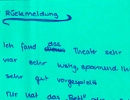 Rückmeldung
Ich fand das Theater sehr
war sehr lustig, spannend. Ihr
sehr gut vorgespielt
Mir hat das